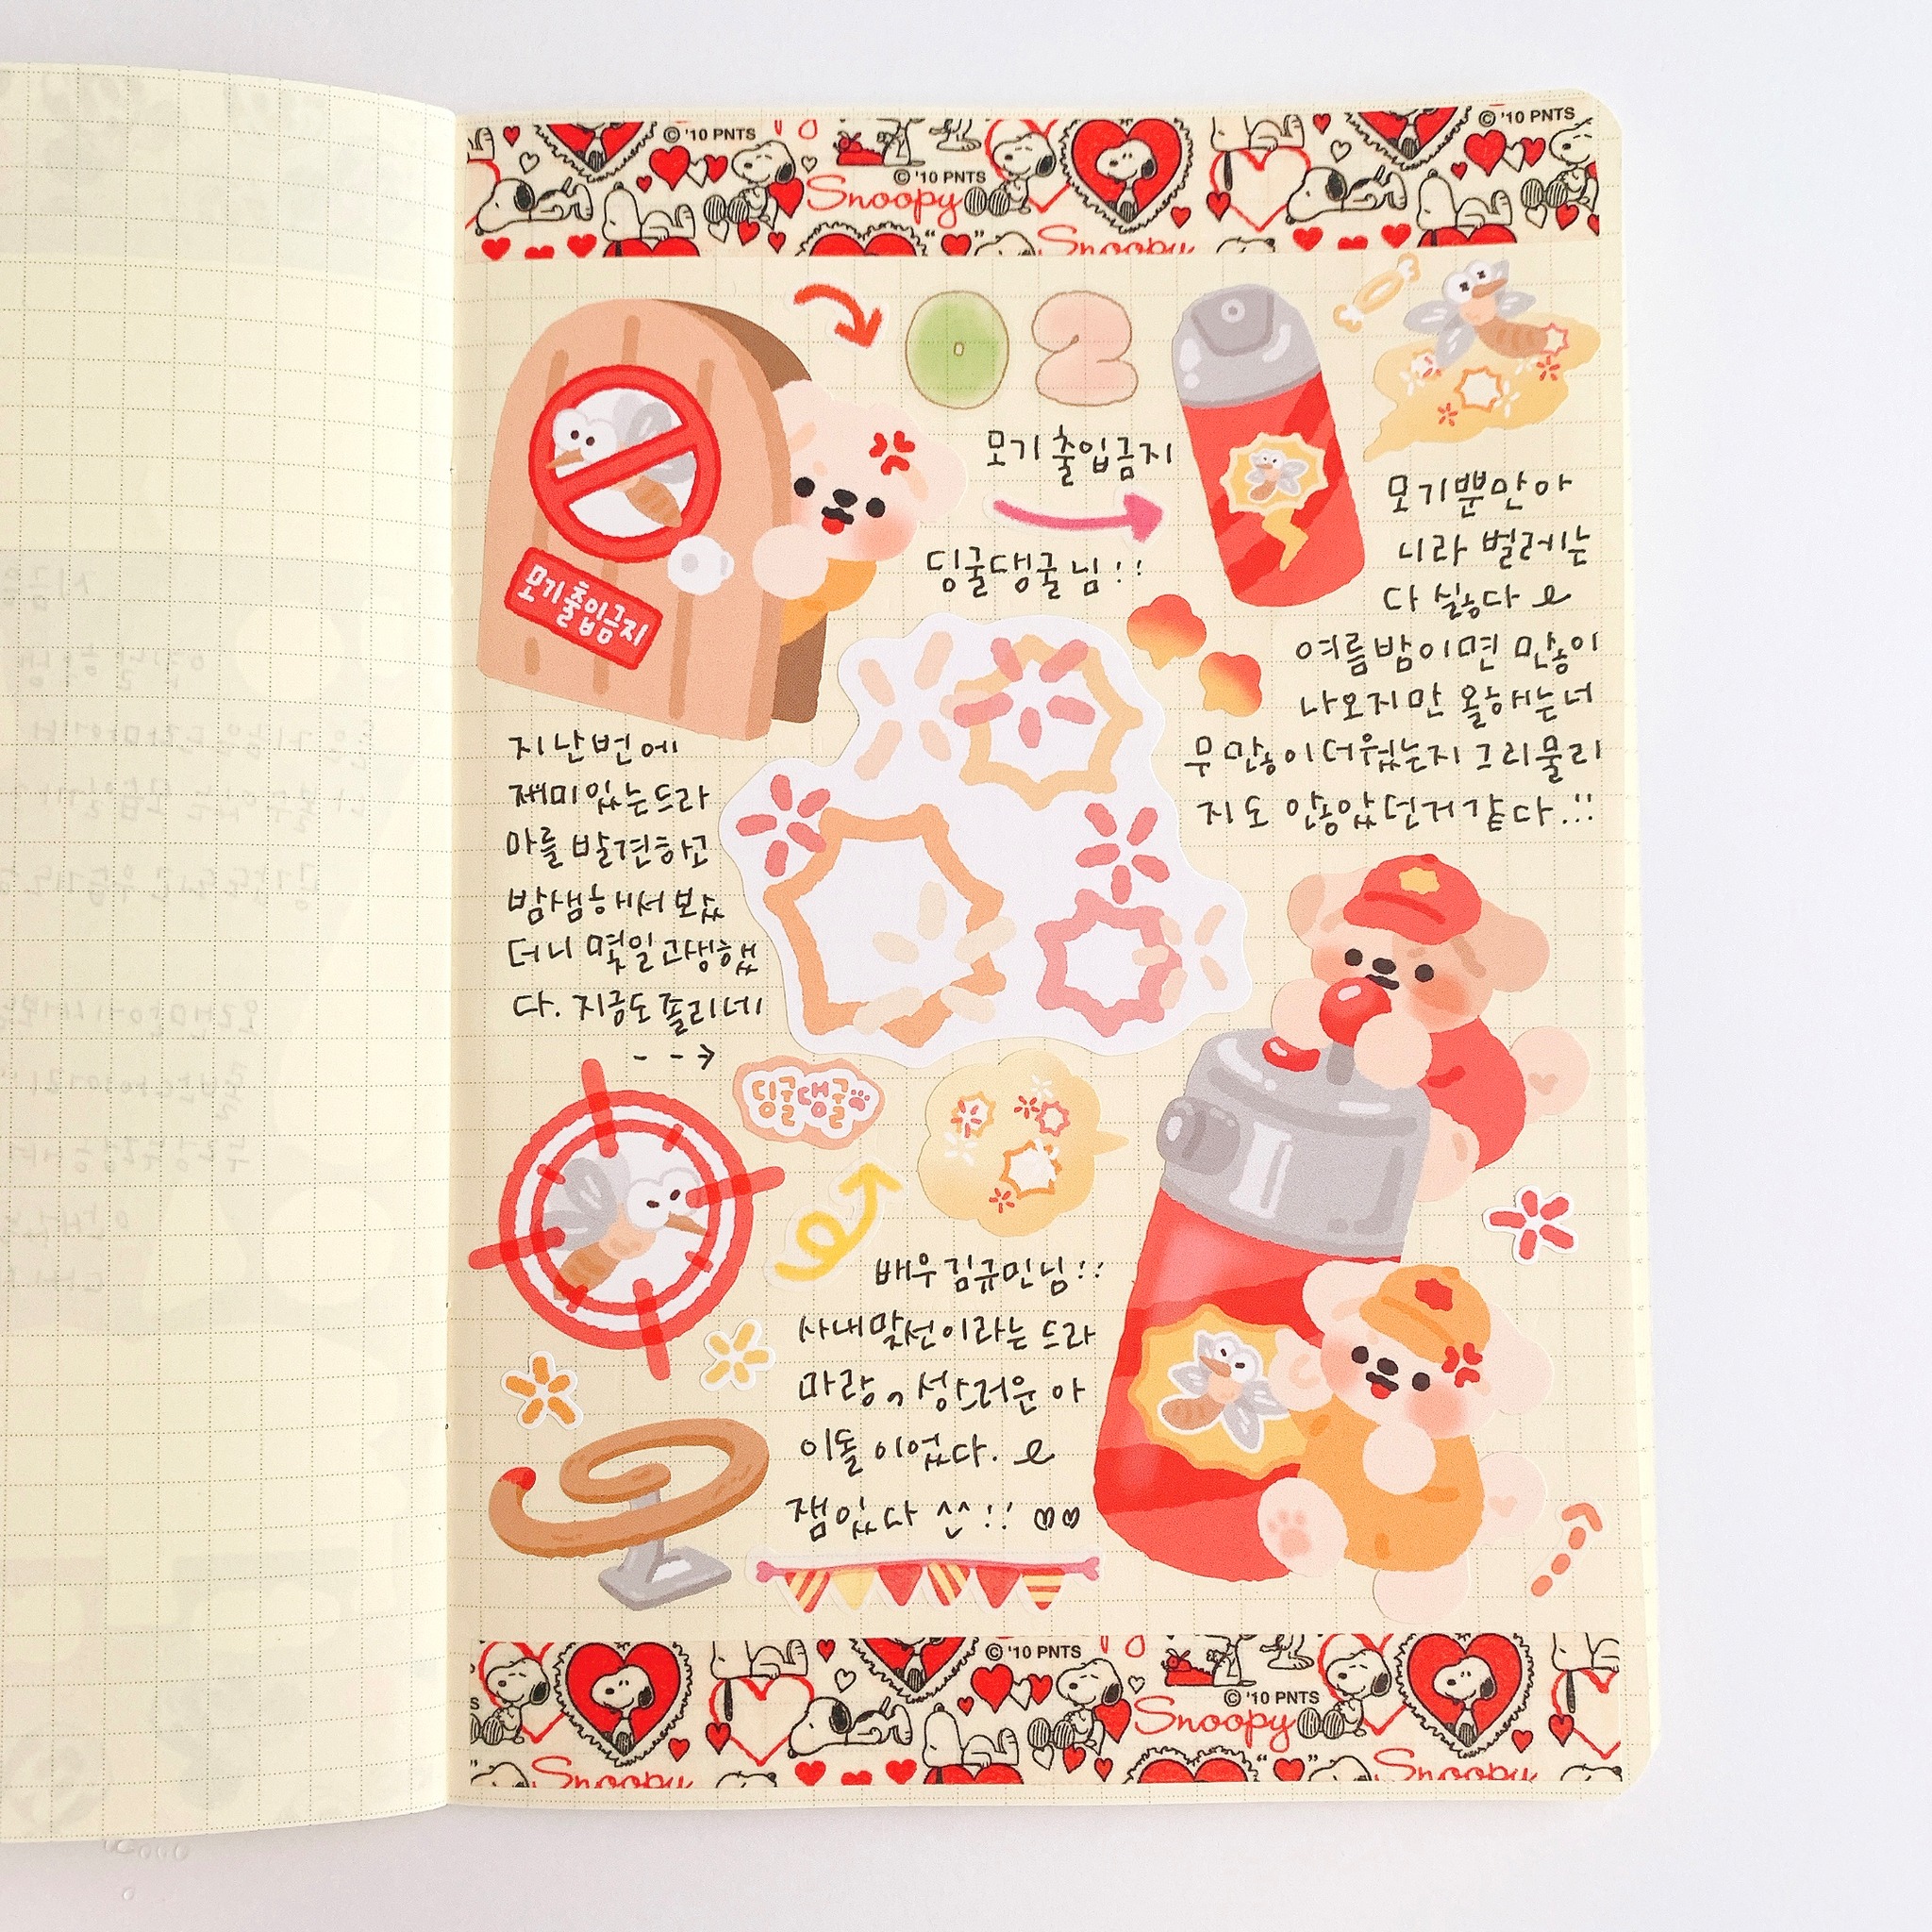 © '10 PNTS
© '10 PNTS
© '10 PNTS
Snoopy
Snoopy
02
모기출입금지
딩굴댕굴님!!
모기출입금지
모기뿐만아
니라 벌레는
다 싫다
여름밤이면 많이
나오지만 올해는너
무많이더웠는지 그리물리
지도 않았던거같다!!!
지난번에
재미있는드라
마를 발견하고
밤샘해서 봤
더니 몇일고생했
다. 지금도졸리네
딩굴댕굴
배우김규민님!!
사내맞선이라는 드라
마랑, 성스러운 아
이돌 이었다.
잼있다 ^^!!
© '10 PNTS
© '10 PNTS
Snoopy
Snoopy
Snoopy